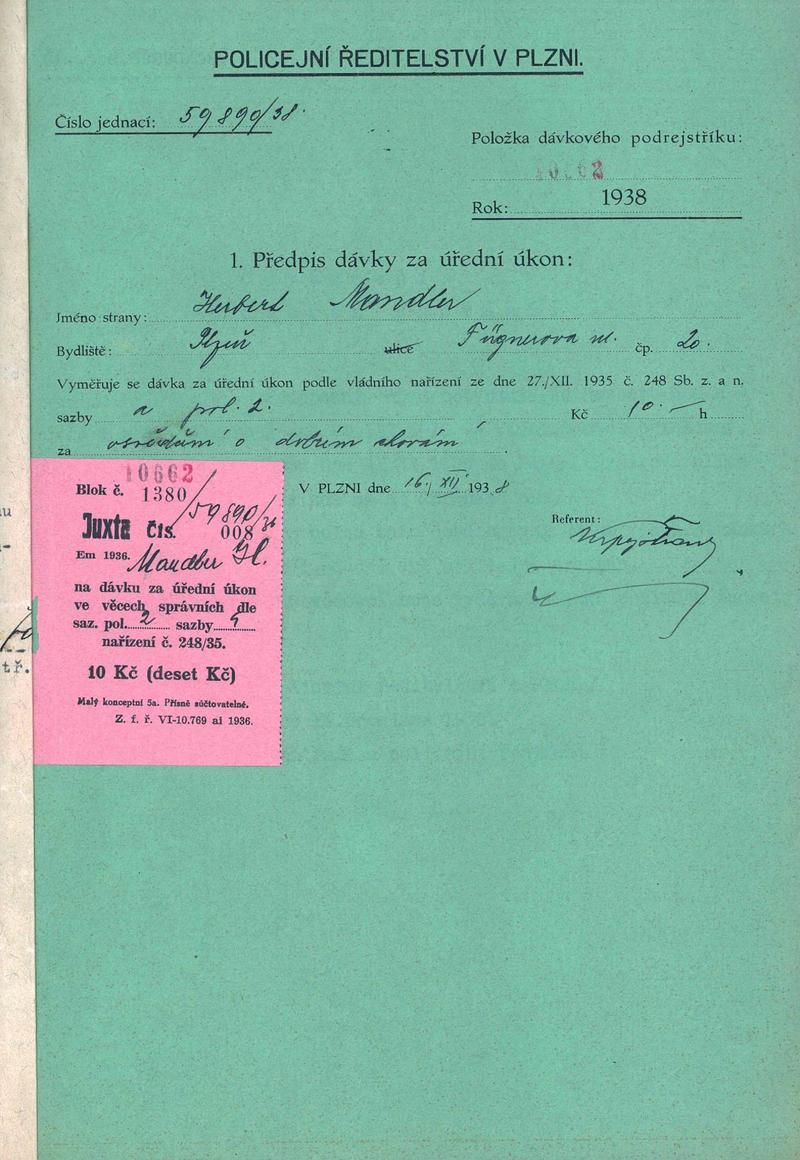 POLICEJNÍ ŘEDITELSTVÍ V PLZNI.
Číslo jednací: 59890/38.
Položka dávkového podrejstříku:
10662
Rok: 1938
1. Předpis dávky za úřední úkon:
Jméno strany: Herbert Mandler
Bydliště: Plzeň ulice Fügnerova ul. čp. 20.
Vyměřuje se dávka za úřední úkon podle vládního nařízení ze dne 27./XII. 1935 č. 248 Sb. z. a n.
sazby a pol. 2. Kč 10.— h
za o
V PLZNI dne 16./XII. 1938
Referent:
10662
Blok č. 1380/
59890/38
Juxta čís. 008
Em 1936. Mandler H.
na dávku za úřední úkon
ve věcech správních dle
saz. pol. 2 sazby
nařízení č. 248/35.
10 Kč (deset Kč)
Malý konceptní 5a. Přísně súčtovatelné.
Z. f. ř. VI-10.769 ai 1936.
tř.